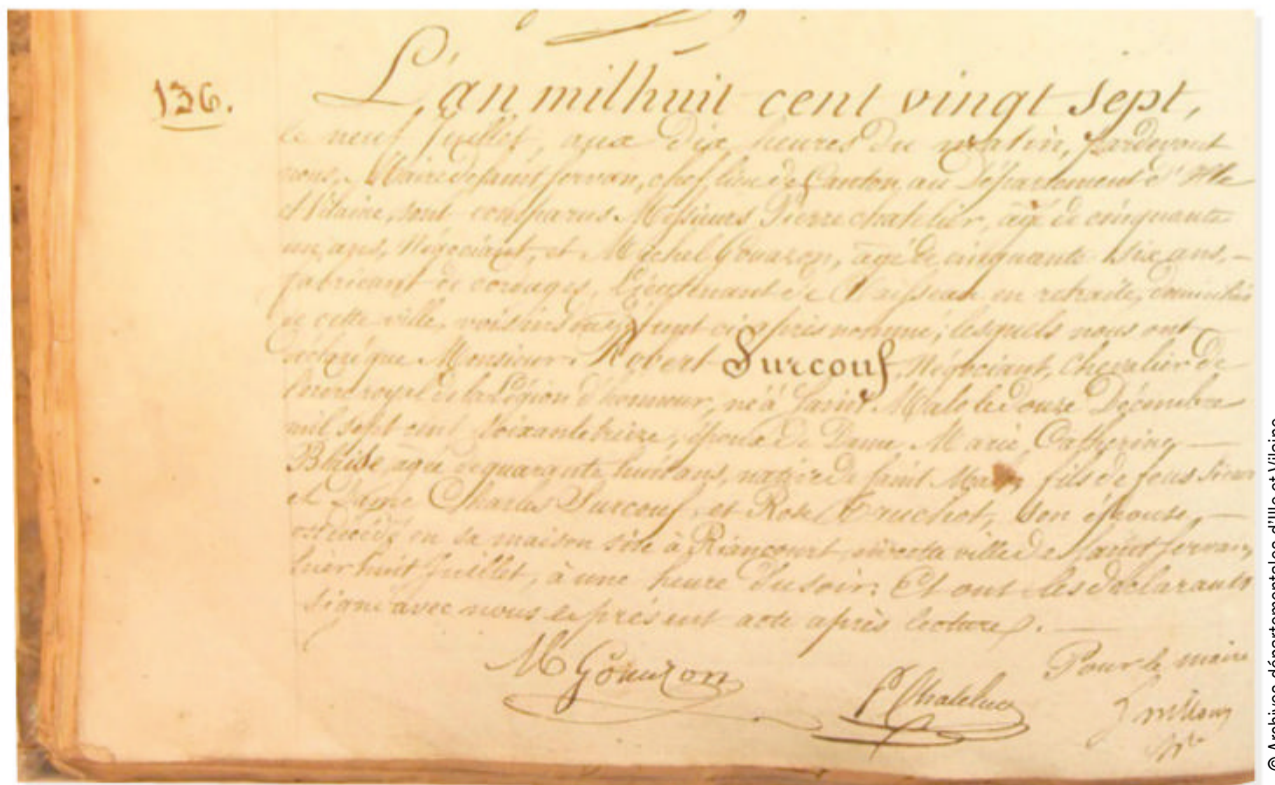 136.
L'an mil huit cent vingt sept,
le neuf Juillet, aux dix heures du matin, pardevant
nous, Maire de saint servan, chef lieu de Canton, au Département d'Ille
et Vilaine, sont comparus Messieurs Pierre chatelier, âgé de cinquante
un ans, Négociant, et Michel Gouazon, âgé de cinquante six ans,
fabricant de cordages, Lieutenant de Vaisseau en retraite, domiciliés
de cette ville, voisins du défunt ci après nommé; lesquels nous ont
déclaré que Monsieur Robert Surcouf, Négociant, Chevalier de
l'ordre royal de la Légion d'honneur, né à Saint Malo le douze Décembre
mil sept cent soixante treize, époux de Dame Marie Catherine
Blaise, agée de quarante huit ans, native de saint Malo, fils de feus sieur
et Dame Charles Surcouf, et Rose Truchot, son épouse,
est décédé en sa maison sise à Riancourt, en cette ville de saint servan,
hier huit Juillet, à une heure du soir; Et ont les déclarants
signé avec nous le présent acte après lecture.
M Gouazon
Pour le maire
© Archives départementales d'Ille et Vilaine